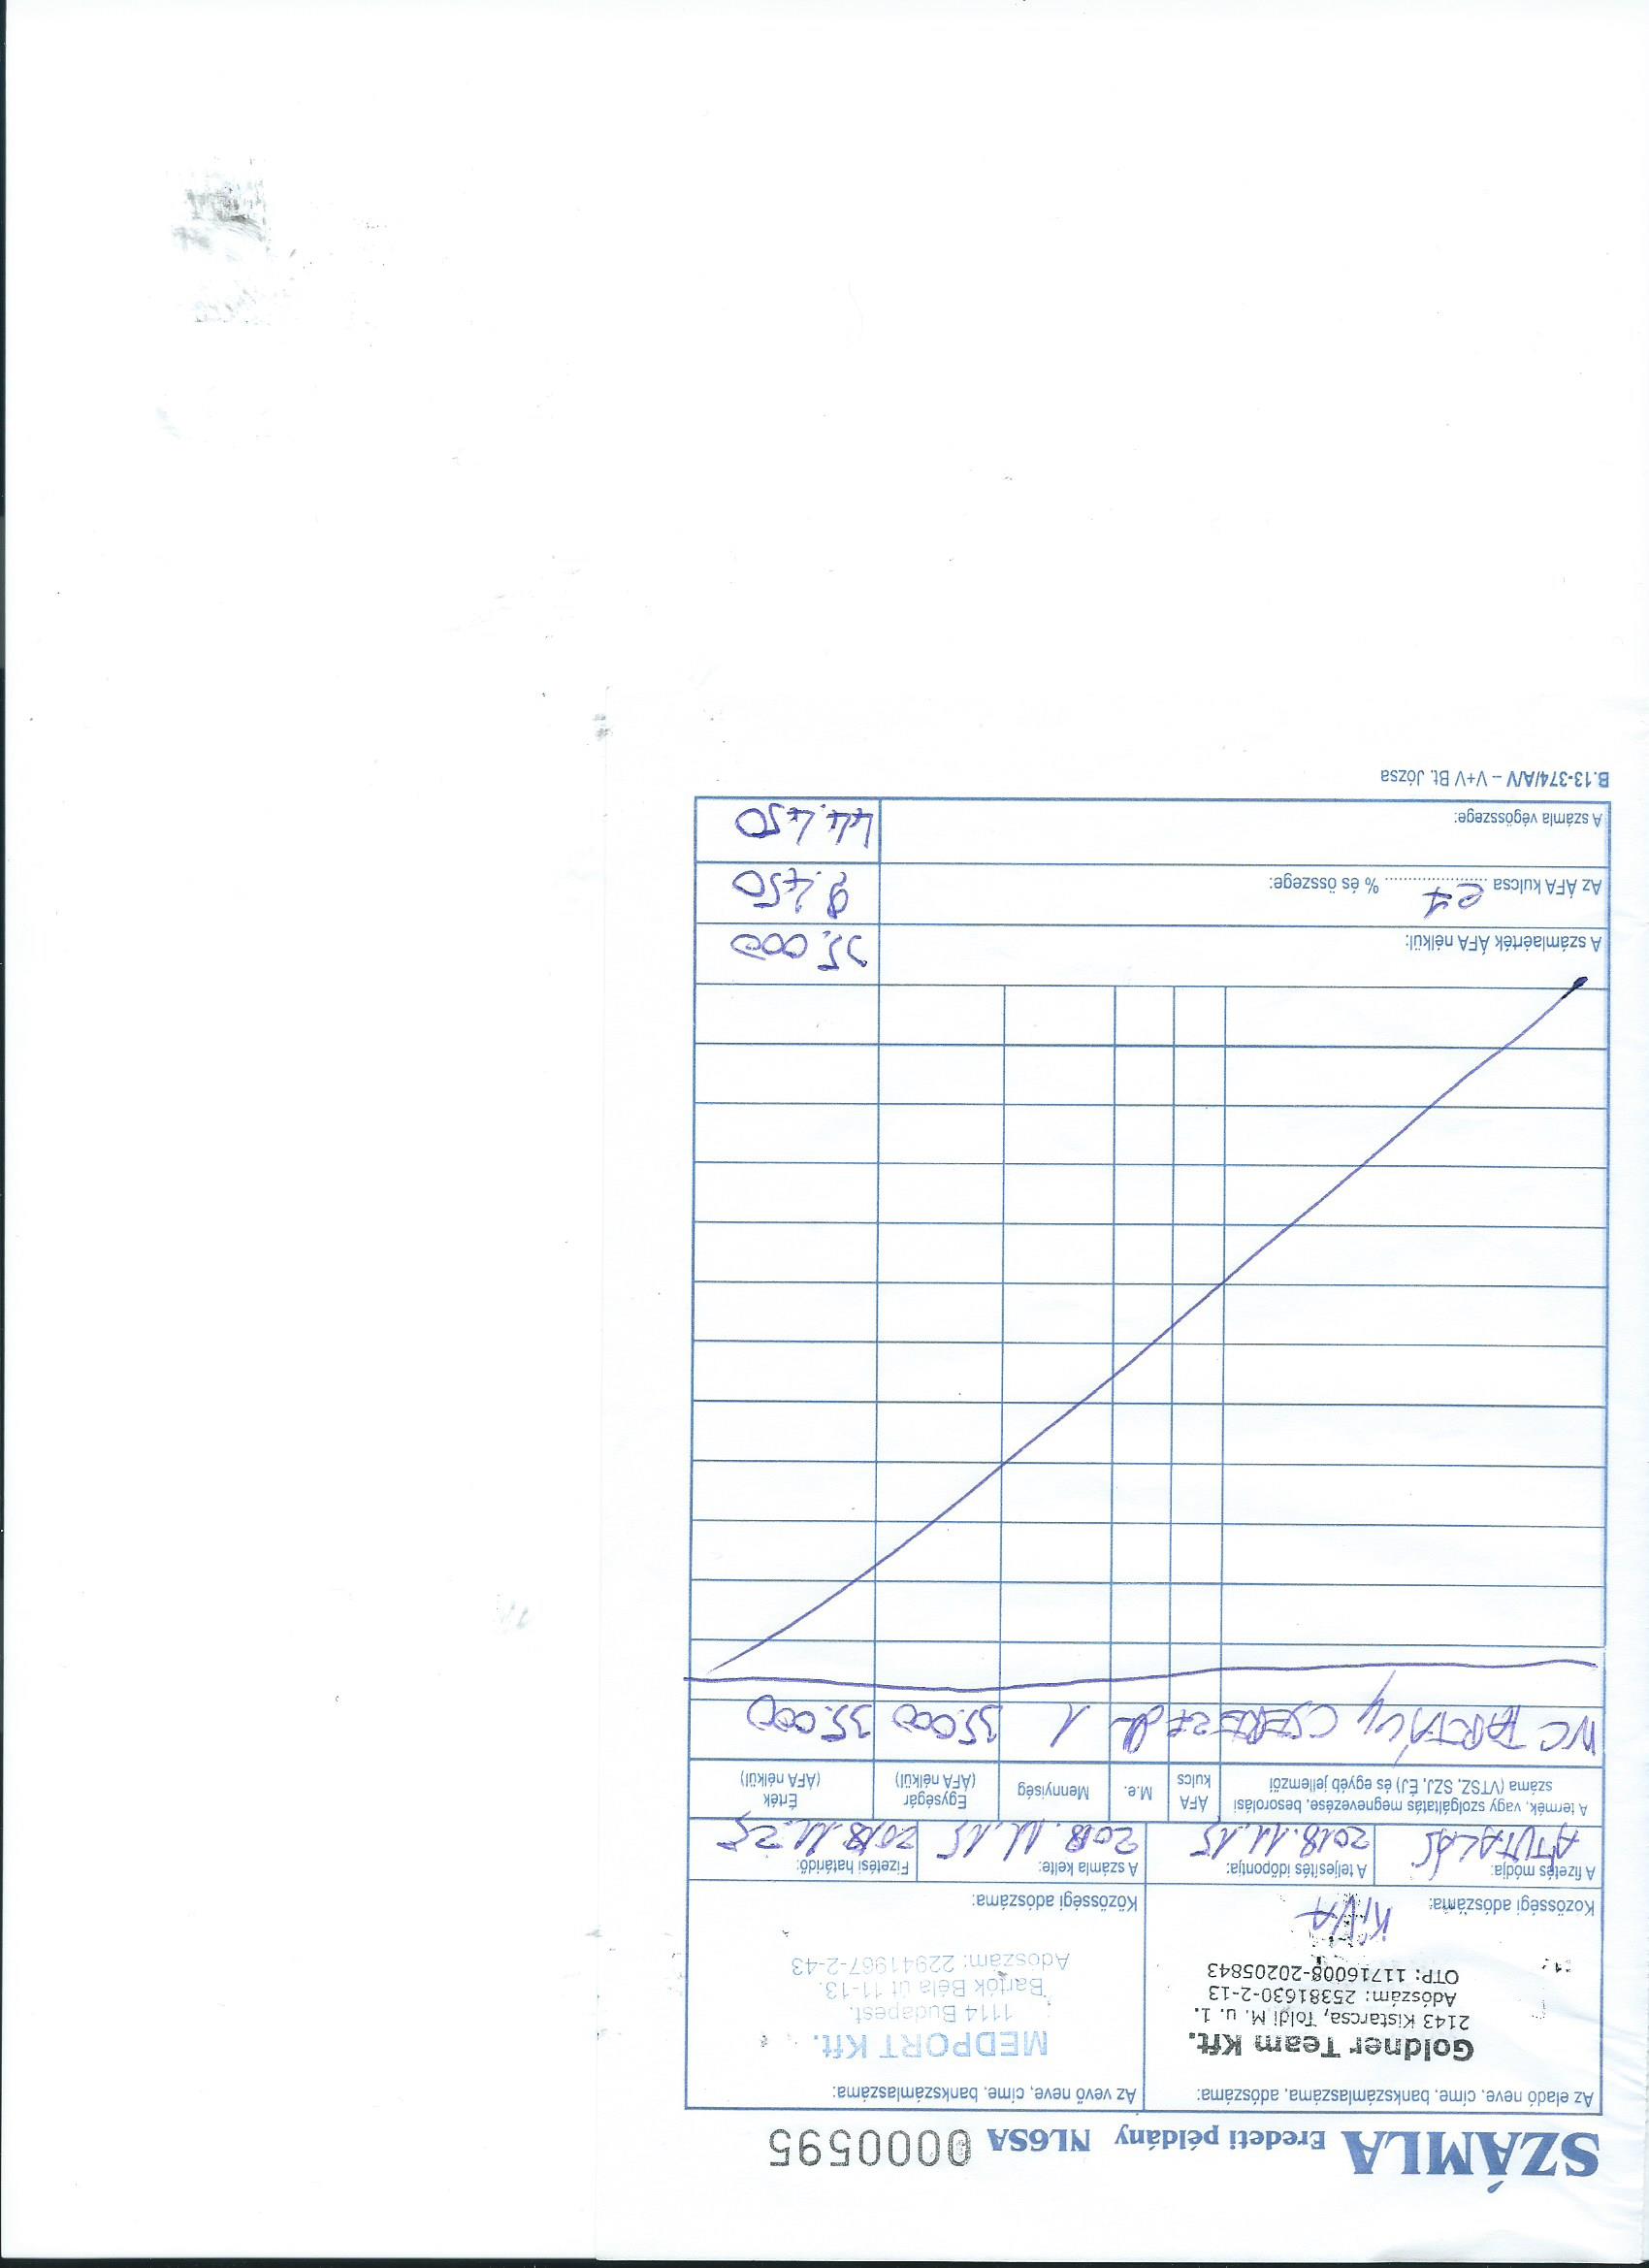 SZÁMLA Eredeti példány NL6SA 0000595
Az eladó neve, címe, bankszámlaszáma, adószáma:
Goldner Team Kft.
2143 Kistarcsa, Toldi M. u. 1.
Adószám: 25381630-2-13
OTP: 11716008-20205843
KIVA
Közösségi adószáma:
Az vevő neve, címe, bankszámlaszáma:
MEDPORT Kft.
1114 Budapest.
Bartók Béla út 11-13.
Adószám: 22941967-2-43
Közösségi adószáma:
A fizetés módja: A teljesítés időpontja: A számla kelte: Fizetési határidő:
ÁTUTALÁS 2018.11.15 2018.11.15 2018.11.25
A termék, vagy szolgáltatás megnevezése, besorolási száma (VTSZ, SZJ, ÉJ) és egyéb jellemzői
ÁFA kulcs
M.e.
Mennyiség
Egységár (ÁFA nélkül)
Érték (ÁFA nélkül)
WC TARTÁLY CSERE 27 1 35.000 35.000
A számlaérték ÁFA nélkül: 35.000
Az ÁFA kulcsa 27 % és összege: 9.450
A számla végösszege: 44.450
B.13-374/A/V – V+V Bt. Józsa